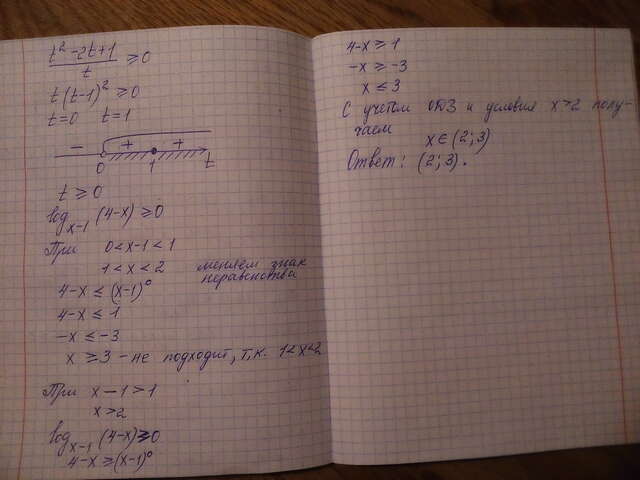 t² - 2t + 1 / t ≥ 0
t(t-1)² ≥ 0
t=0 t=1
- + +
0 1 t
t ≥ 0
log x-1 (4-x) ≥ 0
При 0 < x-1 < 1
1 < x < 2 меняем знак неравенства
4-x ≤ (x-1)⁰
4-x ≤ 1
-x ≤ -3
x ≥ 3 - не подходит, т.к. 1<x<2
При x-1 > 1
x > 2
log x-1 (4-x) ≥ 0
4-x ≥ (x-1)⁰
4-x ≥ 1
-x ≥ -3
x ≤ 3
С учетом ОДЗ и условия x>2 полу-
чаем
x∈(2;3)
Ответ: (2;3).